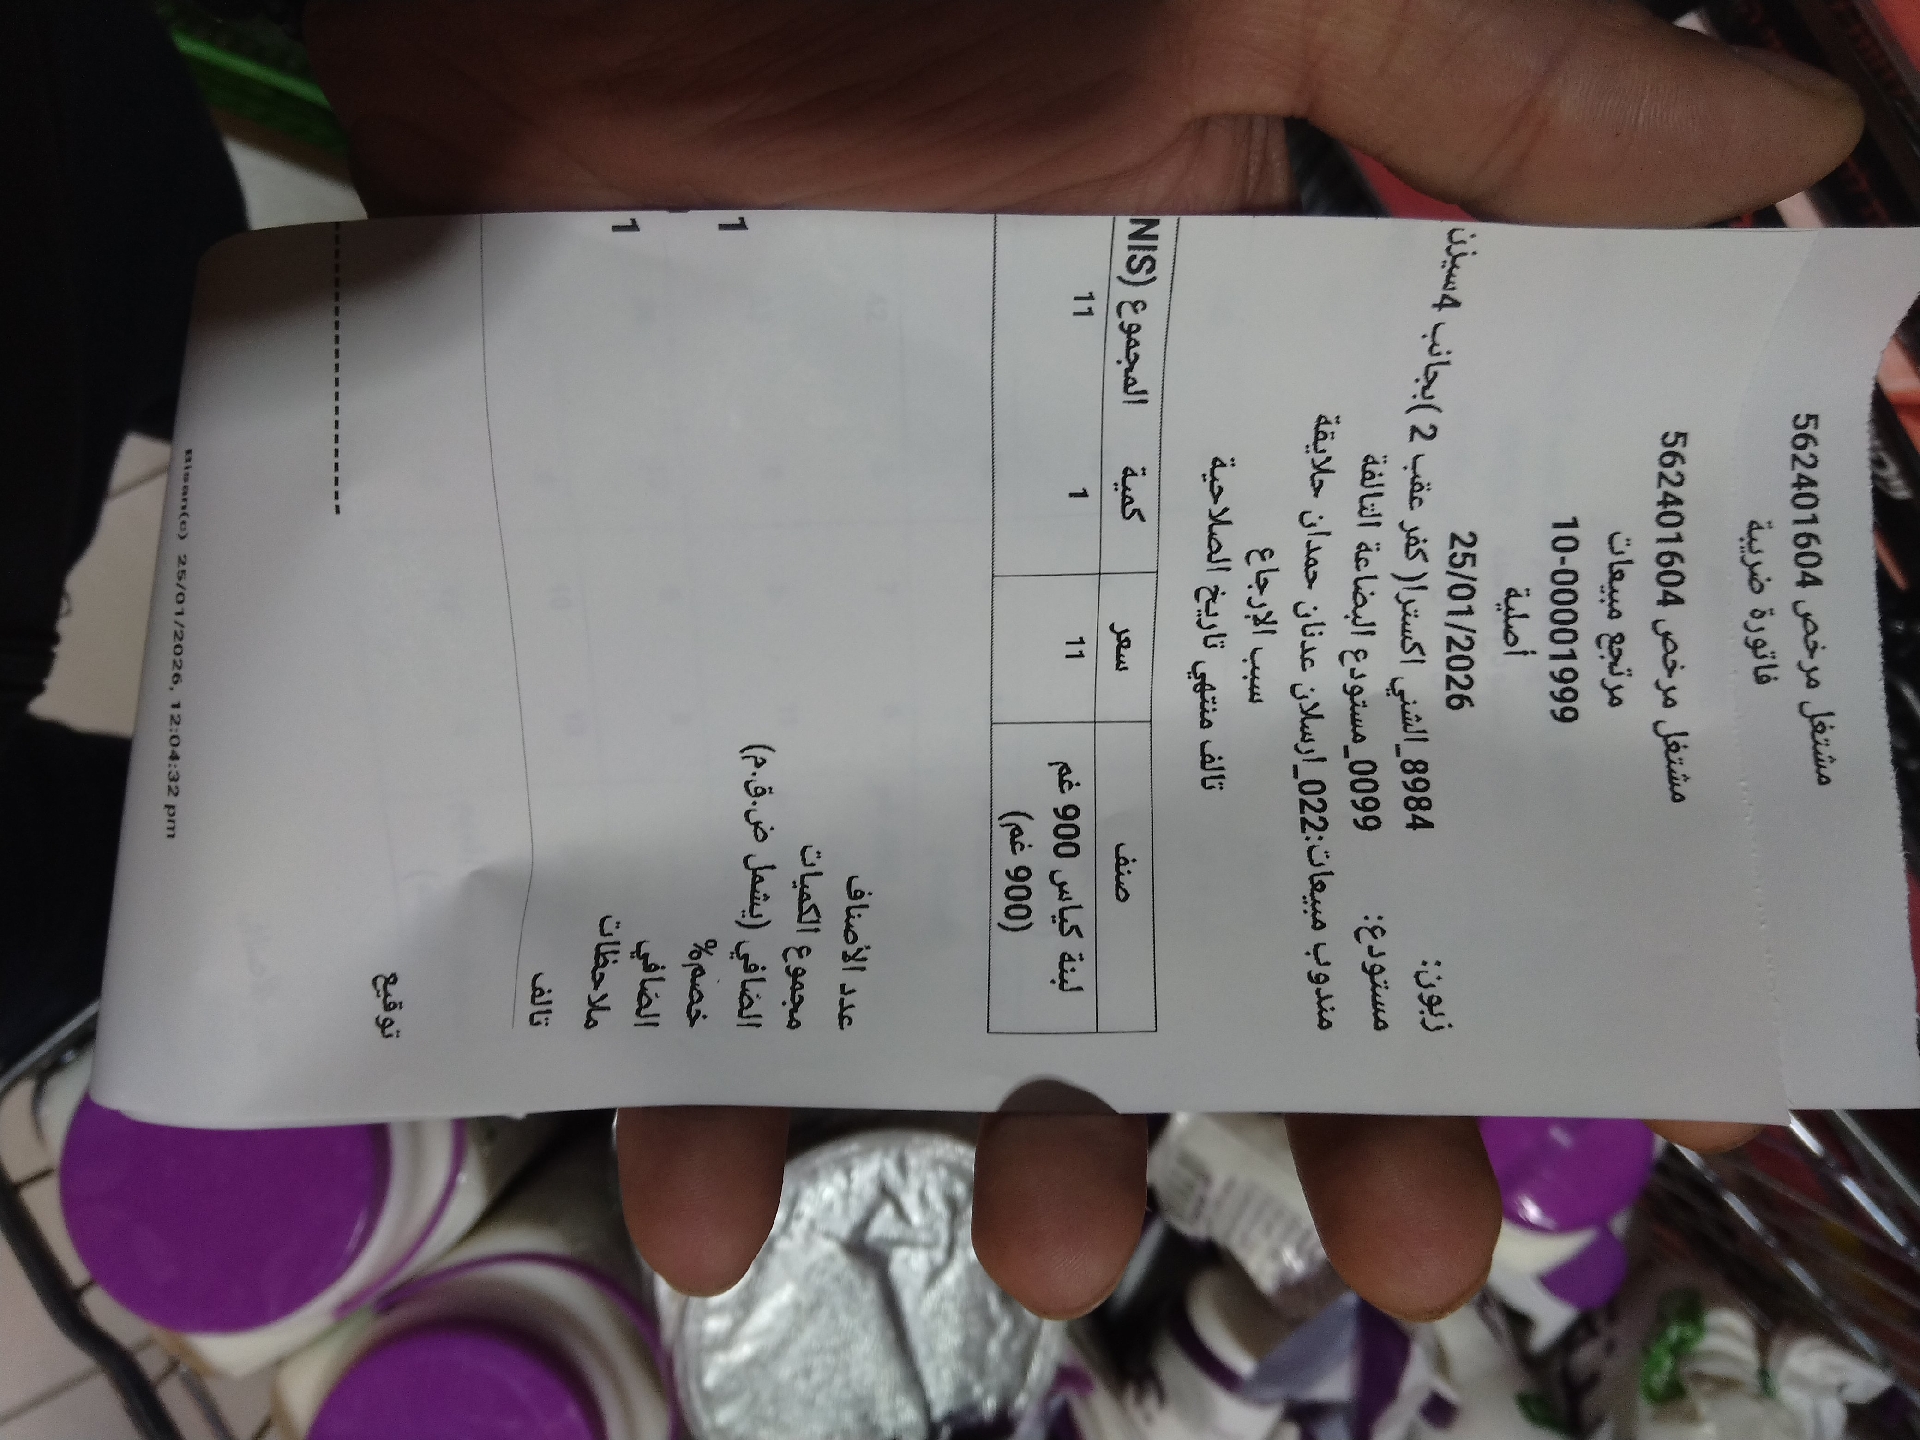 مشتغل مرخص 562401604
فاتورة ضريبة
مشتغل مرخص 562401604
مرتجع مبيعات
10-000001999
أصلية
25/01/2026
زبون: 8984_الشني اكسترا( كفر عقب 2 )بجانب 4سيزن
مستودع: 0099_مستودع البضاعة التالفة
مندوب مبيعات:022_ارسلان عدنان حمدان حلايقة
سبب الإرجاع
تالف منتهي تاريخ الصلاحية
صنف سعر كمية المجموع (NIS
لبنة كياس 900 غم 11 1 11
(900 غم)
عدد الأصناف
مجموع الكميات
الضافي (يشمل ض.ق.م) 1
خصم%
الضافي 1
ملاحظات
تالف
توقيع
Bisan(c) 25/01/2026, 12:04:32 pm